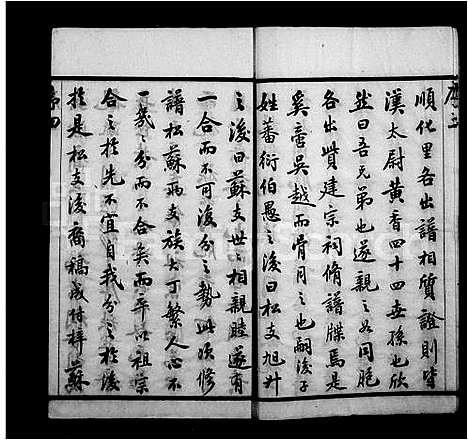 順化里各出譜相質證則皆
漢太尉黃香四十四世孫也欣
然曰吾兄弟也遂親之如同胞
各出貲建宗祠脩譜牒焉是
奚啻吳越而骨肉之也嗣後子
姓蕃衍伯愚之後曰松支旭升
之後曰蘇支世之相親睦遂有
一合而不可復分之勢此次修
譜松蘇兩支族大丁繁人心不
一幾分而不合矣而卒以祖宗
合之於先不宜自我分之於後
於是松支後裔稿成付梓蘇